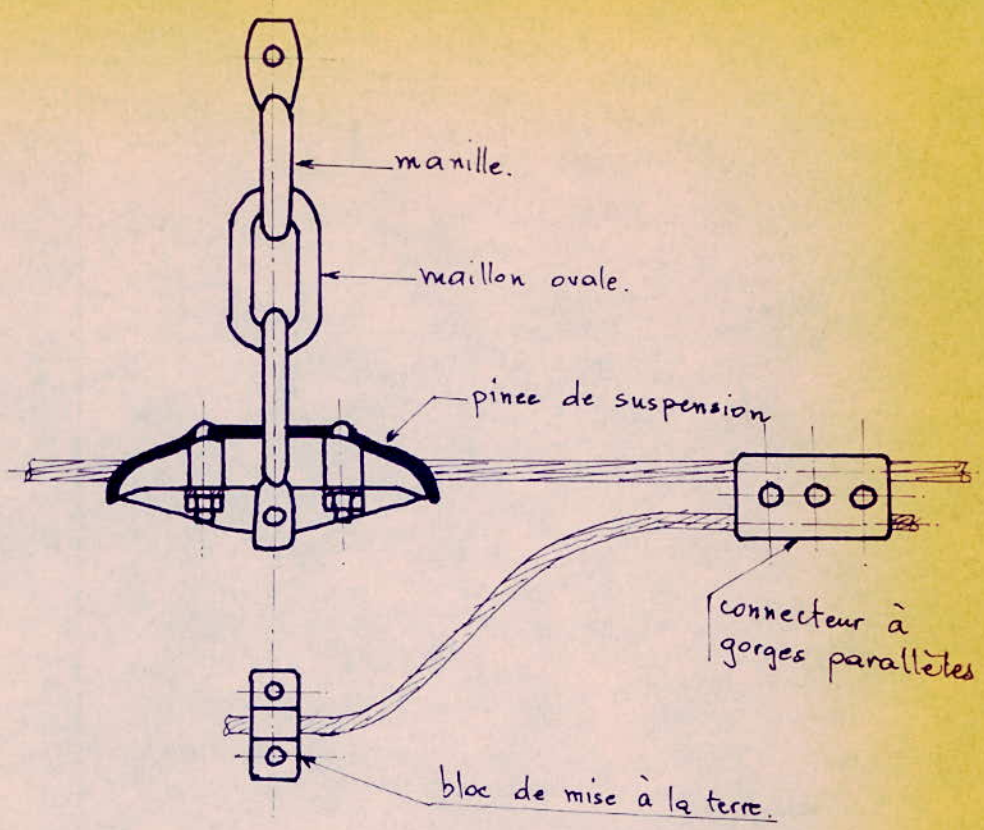 manille.
maillon ovale.
pince de suspension
connecteur à
gorges parallètes
bloc de mise à la terre.